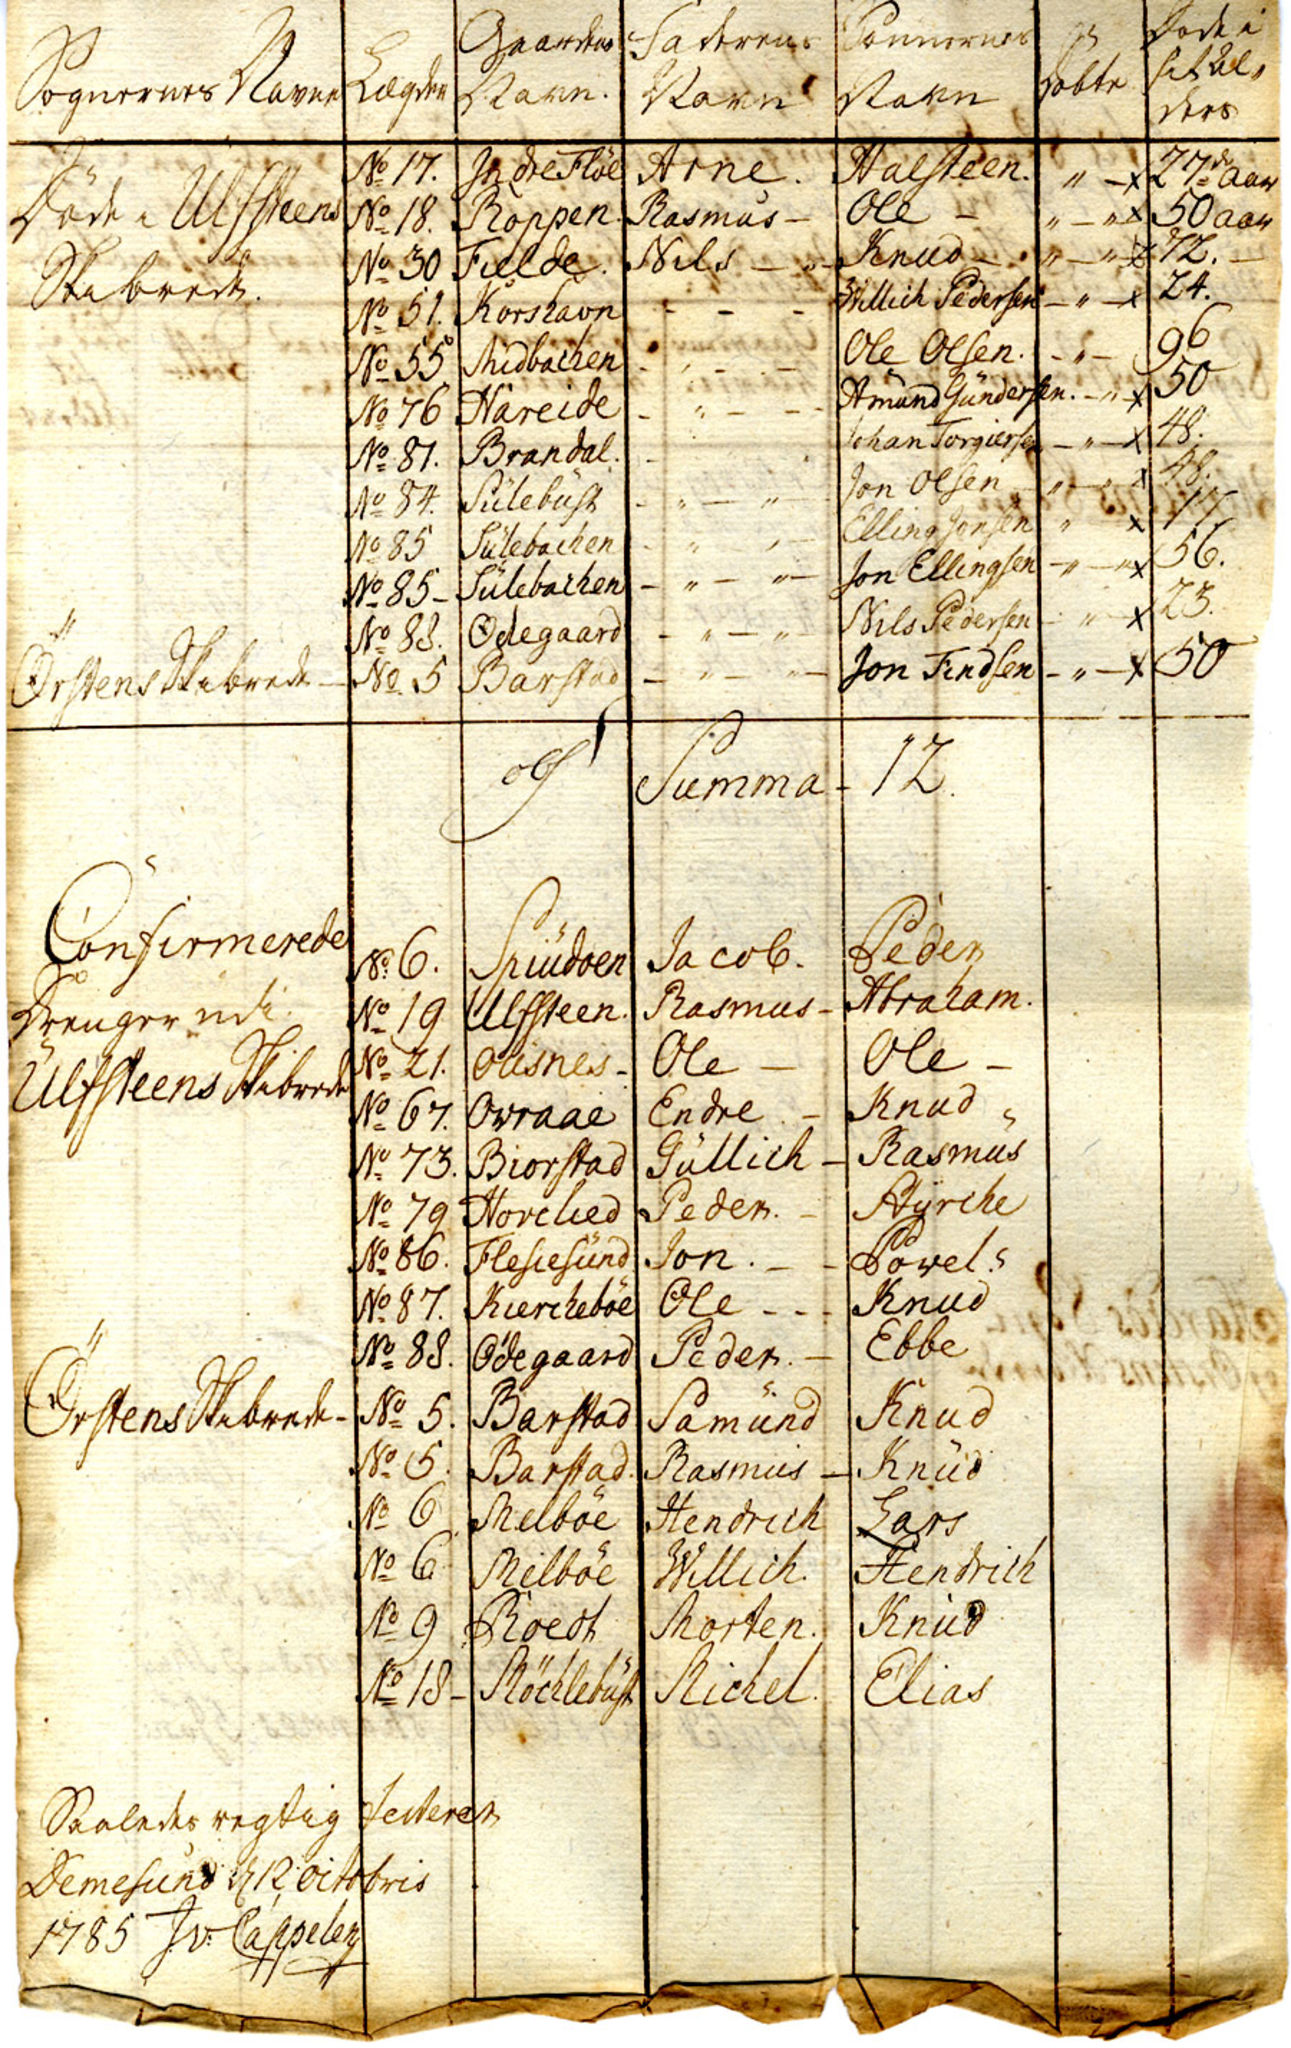 Sognernes Navne Lægder Gaardens Navn. Faderens Navn Sønnernes Navn Døbte Døde i sit Alders
Døde i Ulfsteens Skibrede. No 17. Indre Flöe Arne. Halsteen. " - x 27de aar
No 18. Roppen Rasmus - Ole - " - " x 50 aar
No 30 Fielde. Nils - " - Knud - " - " x 72. -
No 51. Korshavn - - - Willich Pedersen - " - x 24.
No 55 Midbachen - " - - Ole Olsen. - " - 96
No 76 Hareide - " - - Amund Gündersen. - " x 50
No 81. Brandal. - Johan Torgiersen - " - x 48.
No 84. Sülebüst - " - " Jon Olsen " - " x 48.
No 85 Sülebachen - " - Elling Jonsen " x 17
No 85 - Sülebachen - " - " - Jon Ellingsen - " - " x 56.
No 88. Ödegaard - " - " - Nils Pedersen - " x 23.
Örstens Skibrede - No 5 Barstad - " - " - Jon Findsen - " - x 50
Summa - 12.
Confirmerede No 6. Spiüdoen Jacob. Peder
Drenger udi No 19 Ulfsteen. Rasmus - Abraham.
Ulfsteens Skibrede No 21. Olisnes - Ole - Ole -
No 67. Ovraae Endre - Knud
No 73. Biorstad Güllich - Rasmüs
No 79 Hovlied Peder. - Styrche
No 86. Flesiesünd Jon. - - Powel.
No 87. Kiercheböe Ole - - - Knud
No 88. Ödegaard Peder. - Ebbe
Örstens Skibrede - No 5. Barstad Samünd Knud
No 5. Barstad. Rasmus - Knüd
No 6 Melböe Hendrich Lars
No 6 Melböe Willich. Hendrich
No 9 Roedt Morten. Knüd
No 18 - Röchlebüst Michel. Elias
Saaledes rigtig testerer
Demesund d 12 Octobris
1785 J. v. Cappelen